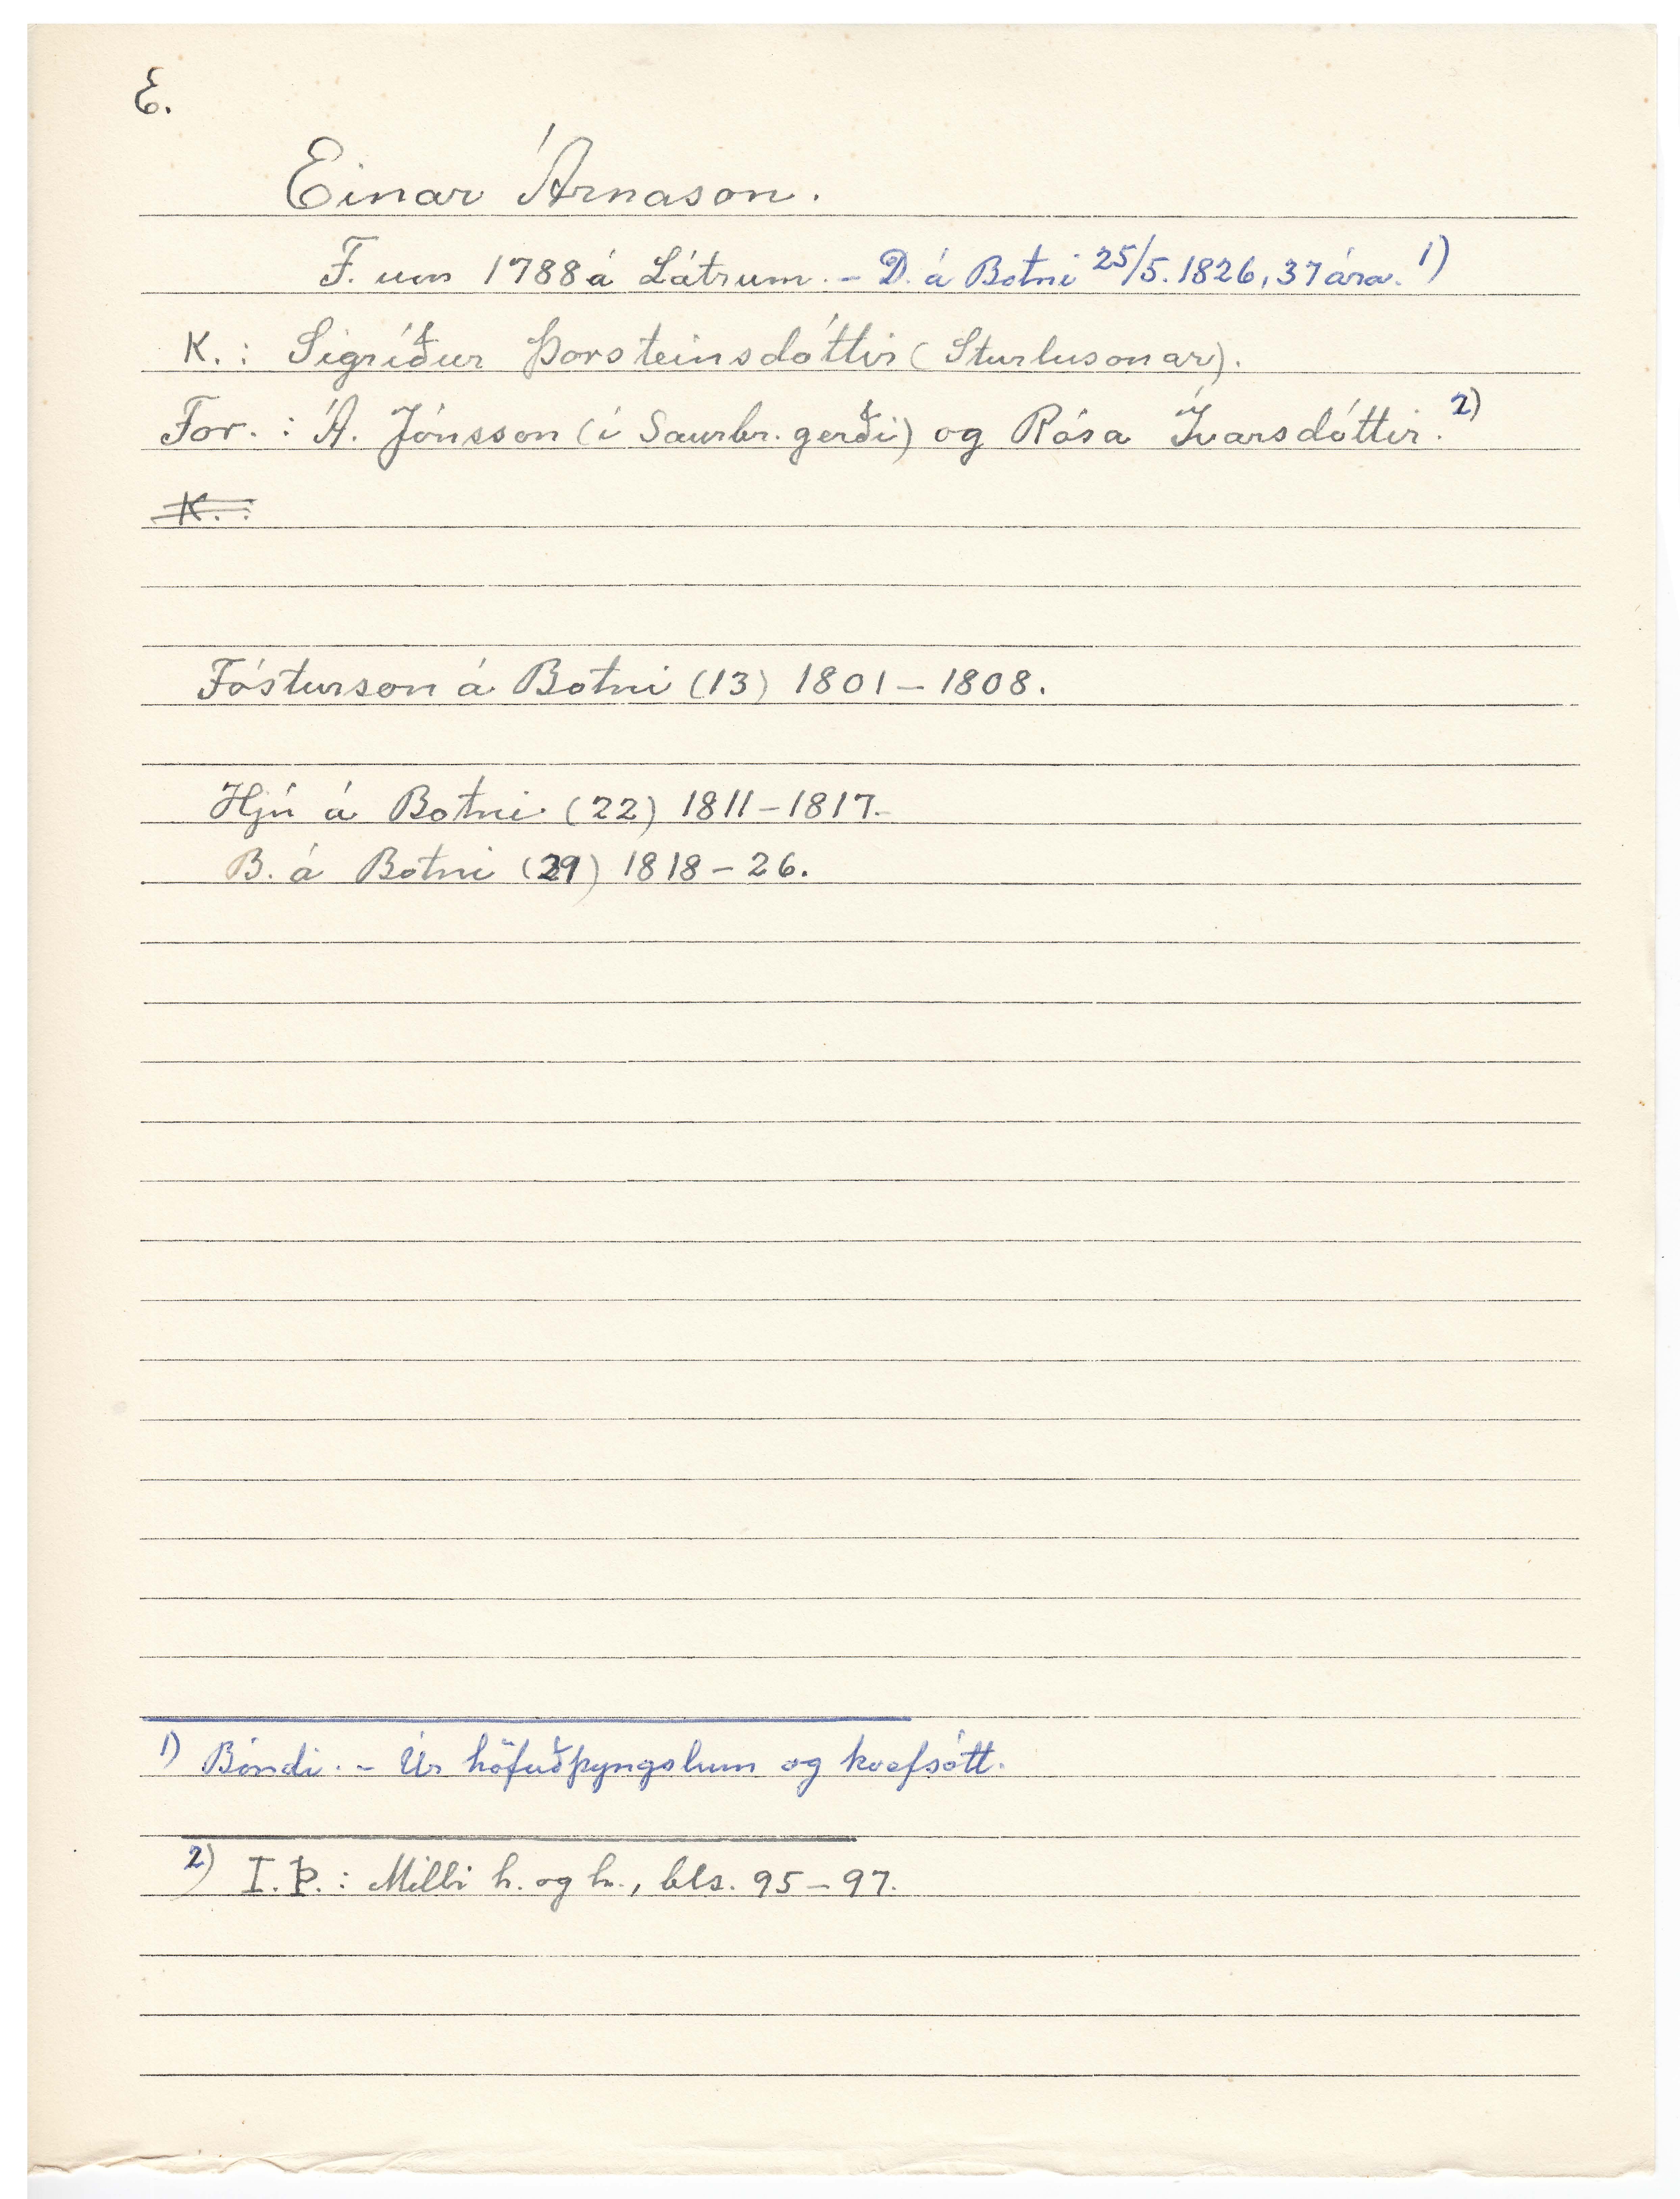 E.
Einar Árnason.
F. um 1788 á Látrum. – D. á Botni 25/5. 1826, 37 ára. 1)
K.: Sigríður Þorsteinsdóttir (Sturlusonar).
For.: Á. Jónsson (í Saurbr. gerði) og Rósa Ívarsdóttir. 2)
K.:
Fósturson á Botni (13) 1801 – 1808.
Hjú á Botni (22) 1811 – 1817.
B. á Botni (29) 1818 – 26.
1) Bóndi. – Úr höfuðþyngslum og kvefsótt.
2) I. Þ.: Milli h. og h., bls. 95 – 97.